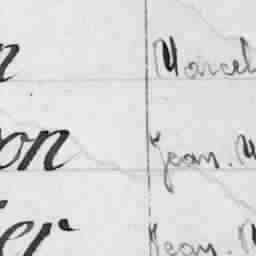 n Marcel
on Jean. M
er Jean. M